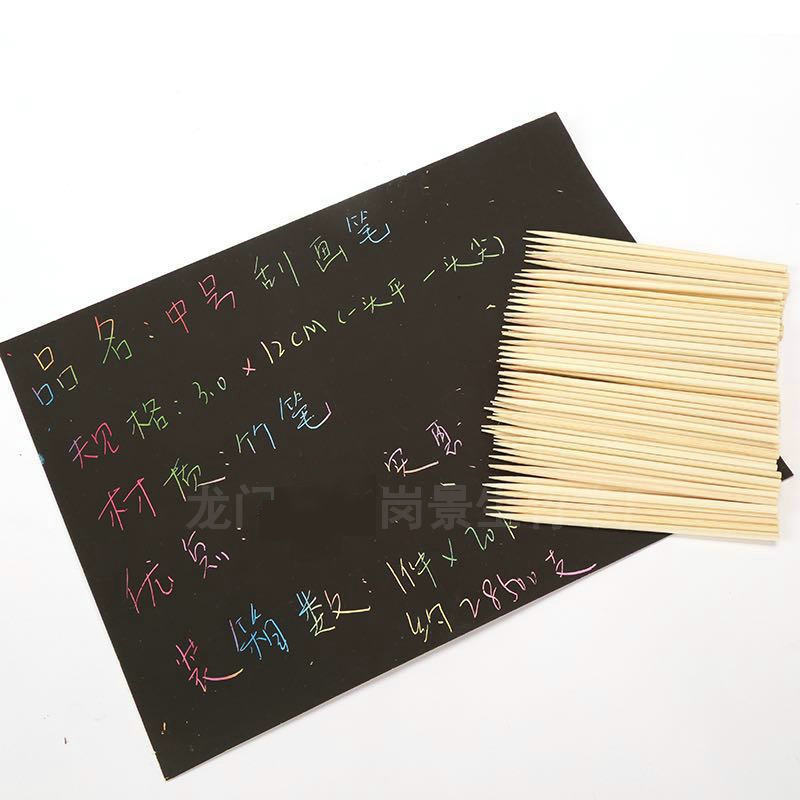 品名:中号刮画笔
规格:3.0×12CM(一头平一头尖)
材质:竹笔
优惠: 实惠
装箱数:1件×20
约28500支
龙门 岗景生